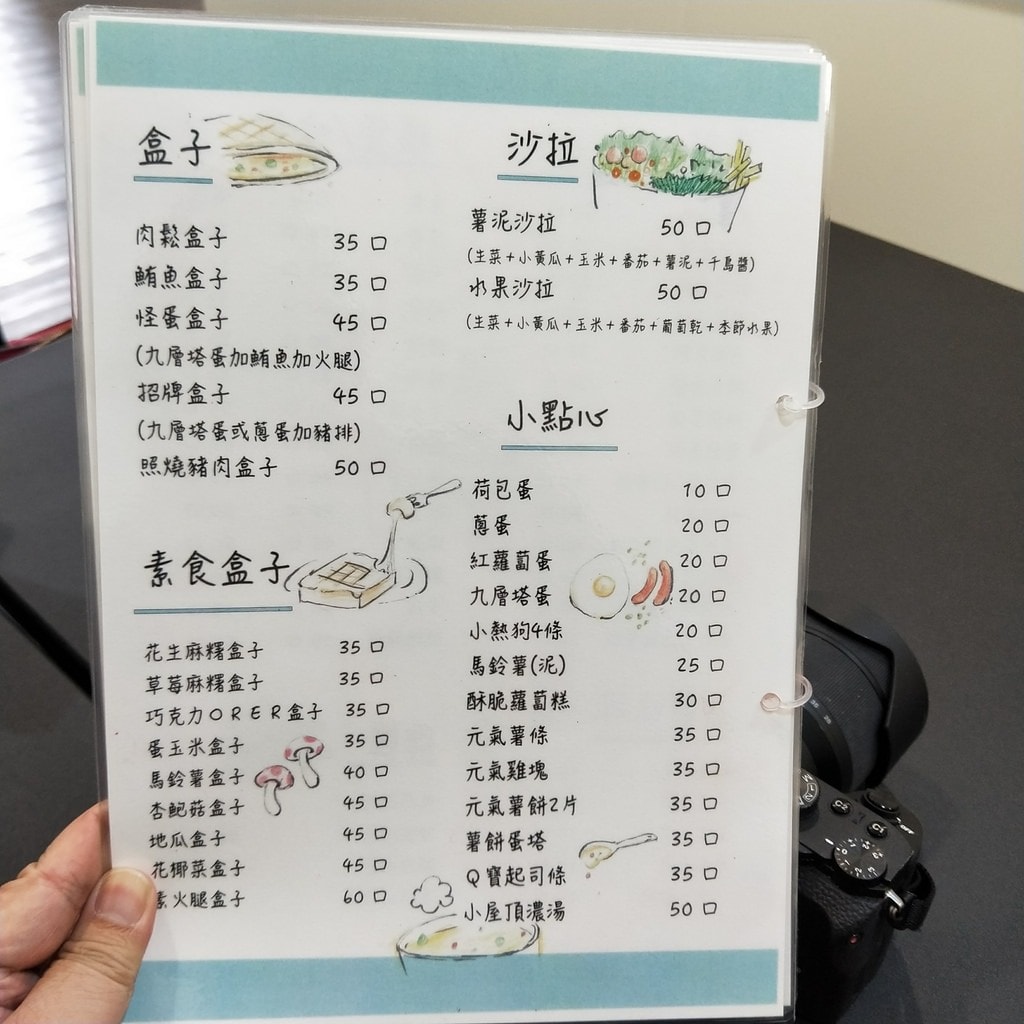 盒子
肉鬆盒子 35 口
鮪魚盒子 35 口
怪蛋盒子 45 口
(九層塔蛋加鮪魚加火腿)
招牌盒子 45 口
(九層塔蛋或蔥蛋加豬排)
照燒豬肉盒子 50 口
素食盒子
花生麻糬盒子 35 口
草莓麻糬盒子 35 口
巧克力ORER盒子 35 口
蛋玉米盒子 35 口
馬鈴薯盒子 40 口
杏鮑菇盒子 45 口
地瓜盒子 45 口
花椰菜盒子 45 口
素火腿盒子 60 口
沙拉
薯泥沙拉 50 口
(生菜+小黃瓜+玉米+番茄+薯泥+千島醬)
水果沙拉 50 口
(生菜+小黃瓜+玉米+番茄+葡萄乾+季節水果)
小點心
荷包蛋 10 口
蔥蛋 20 口
紅蘿蔔蛋 20 口
九層塔蛋 20 口
小熱狗4條 20 口
馬鈴薯(泥) 25 口
酥脆蘿蔔糕 30 口
元氣薯條 35 口
元氣雞塊 35 口
元氣薯餅2片 35 口
薯餅蛋塔 35 口
Q寶起司條 35 口
小屋頂濃湯 50 口